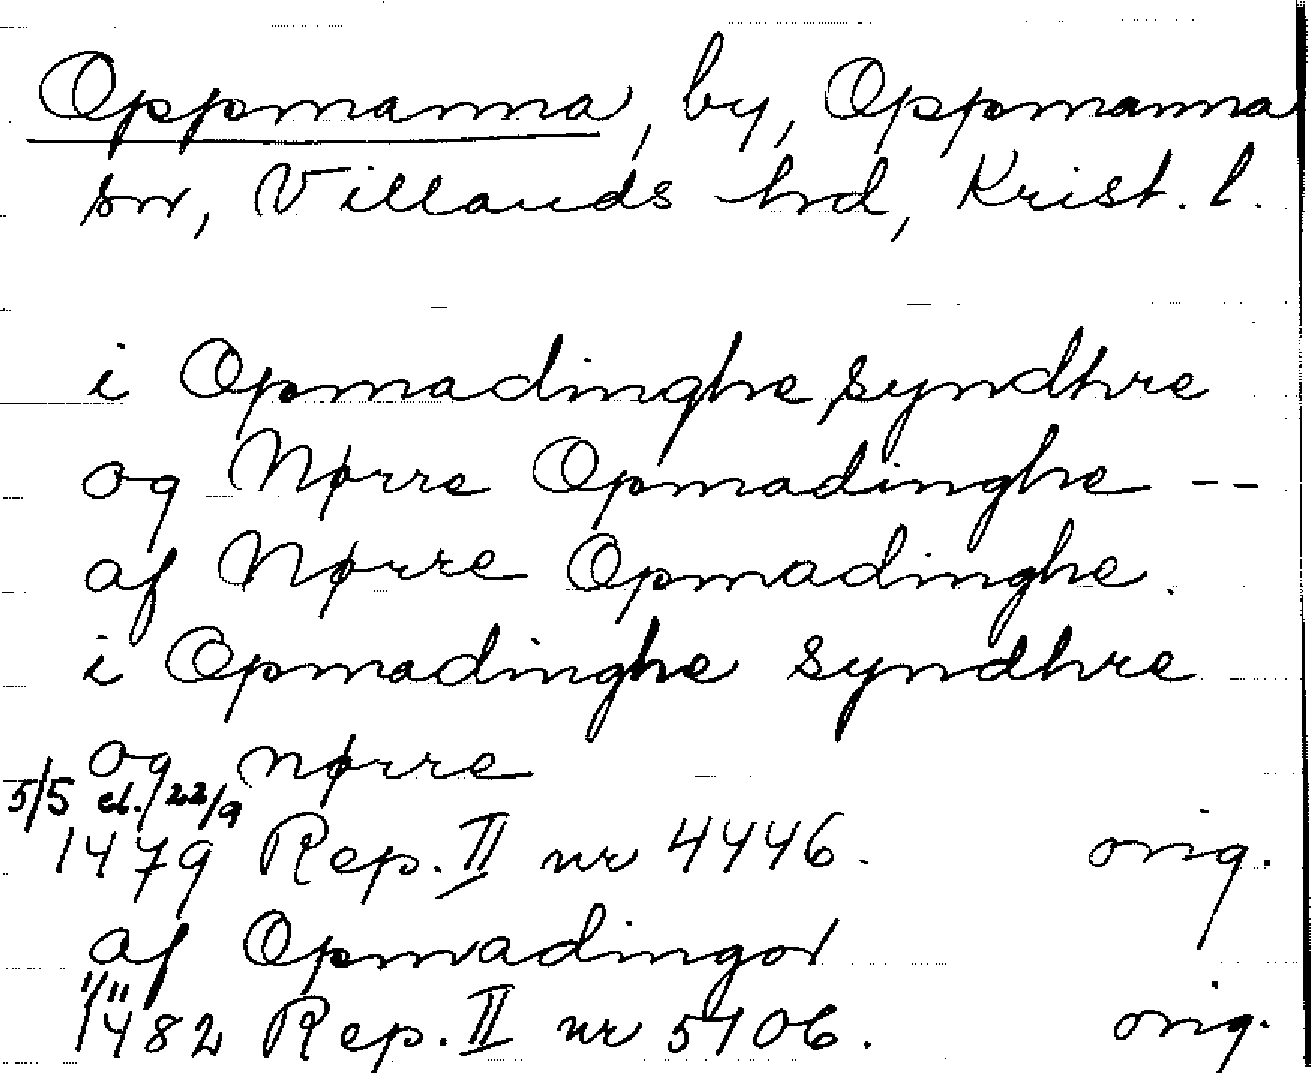 Oppmanna, by, Oppmanna
sn, Villands hrd, Krist. l.
i Opmadinghe syndhre
og Nørre Opmadinghe --
af Nørre Opmadinghe.
i Opmadinghe syndhre
og nørre
5/5 el. 22/9
1479 Rep. II nr 4446. orig.
af Opmadingor
1/11
1482 Rep. II nr 5106. orig.